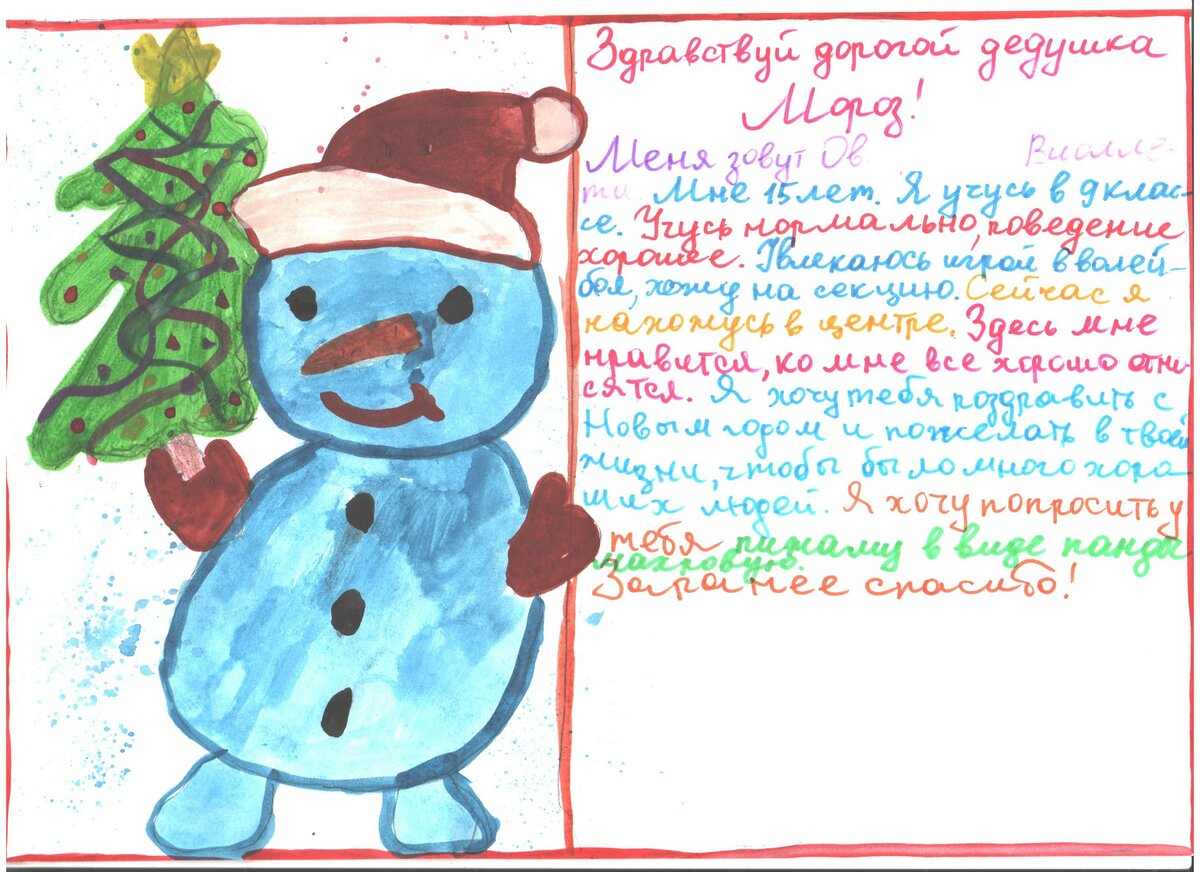 Здравствуй дорогой дедушка
Мороз!
Меня зовут Ов Виолле-
та. Мне 15 лет. Я учусь в 9 клас-
се. Учусь нормально, поведение
хорошее. Увлекаюсь игрой в волей-
бол, хожу на секцию. Сейчас я
нахожусь в центре. Здесь мне
нравится, ко мне все хорошо отно-
сятся. Я хочу тебя поздравить с
Новым годом и пожелать в твоей
жизни, чтобы было много хоро-
ших людей. Я хочу попросить у
тебя пижаму в виде панды
махровую.
Заранее спасибо!